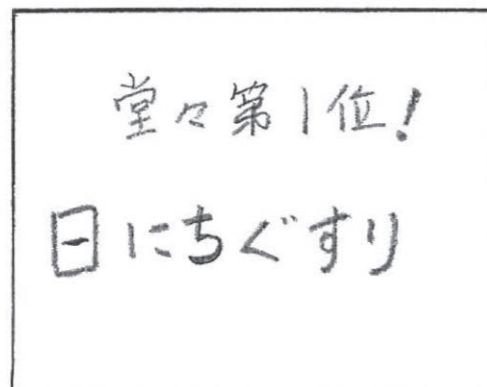 堂々第1位!
日にちぐすり